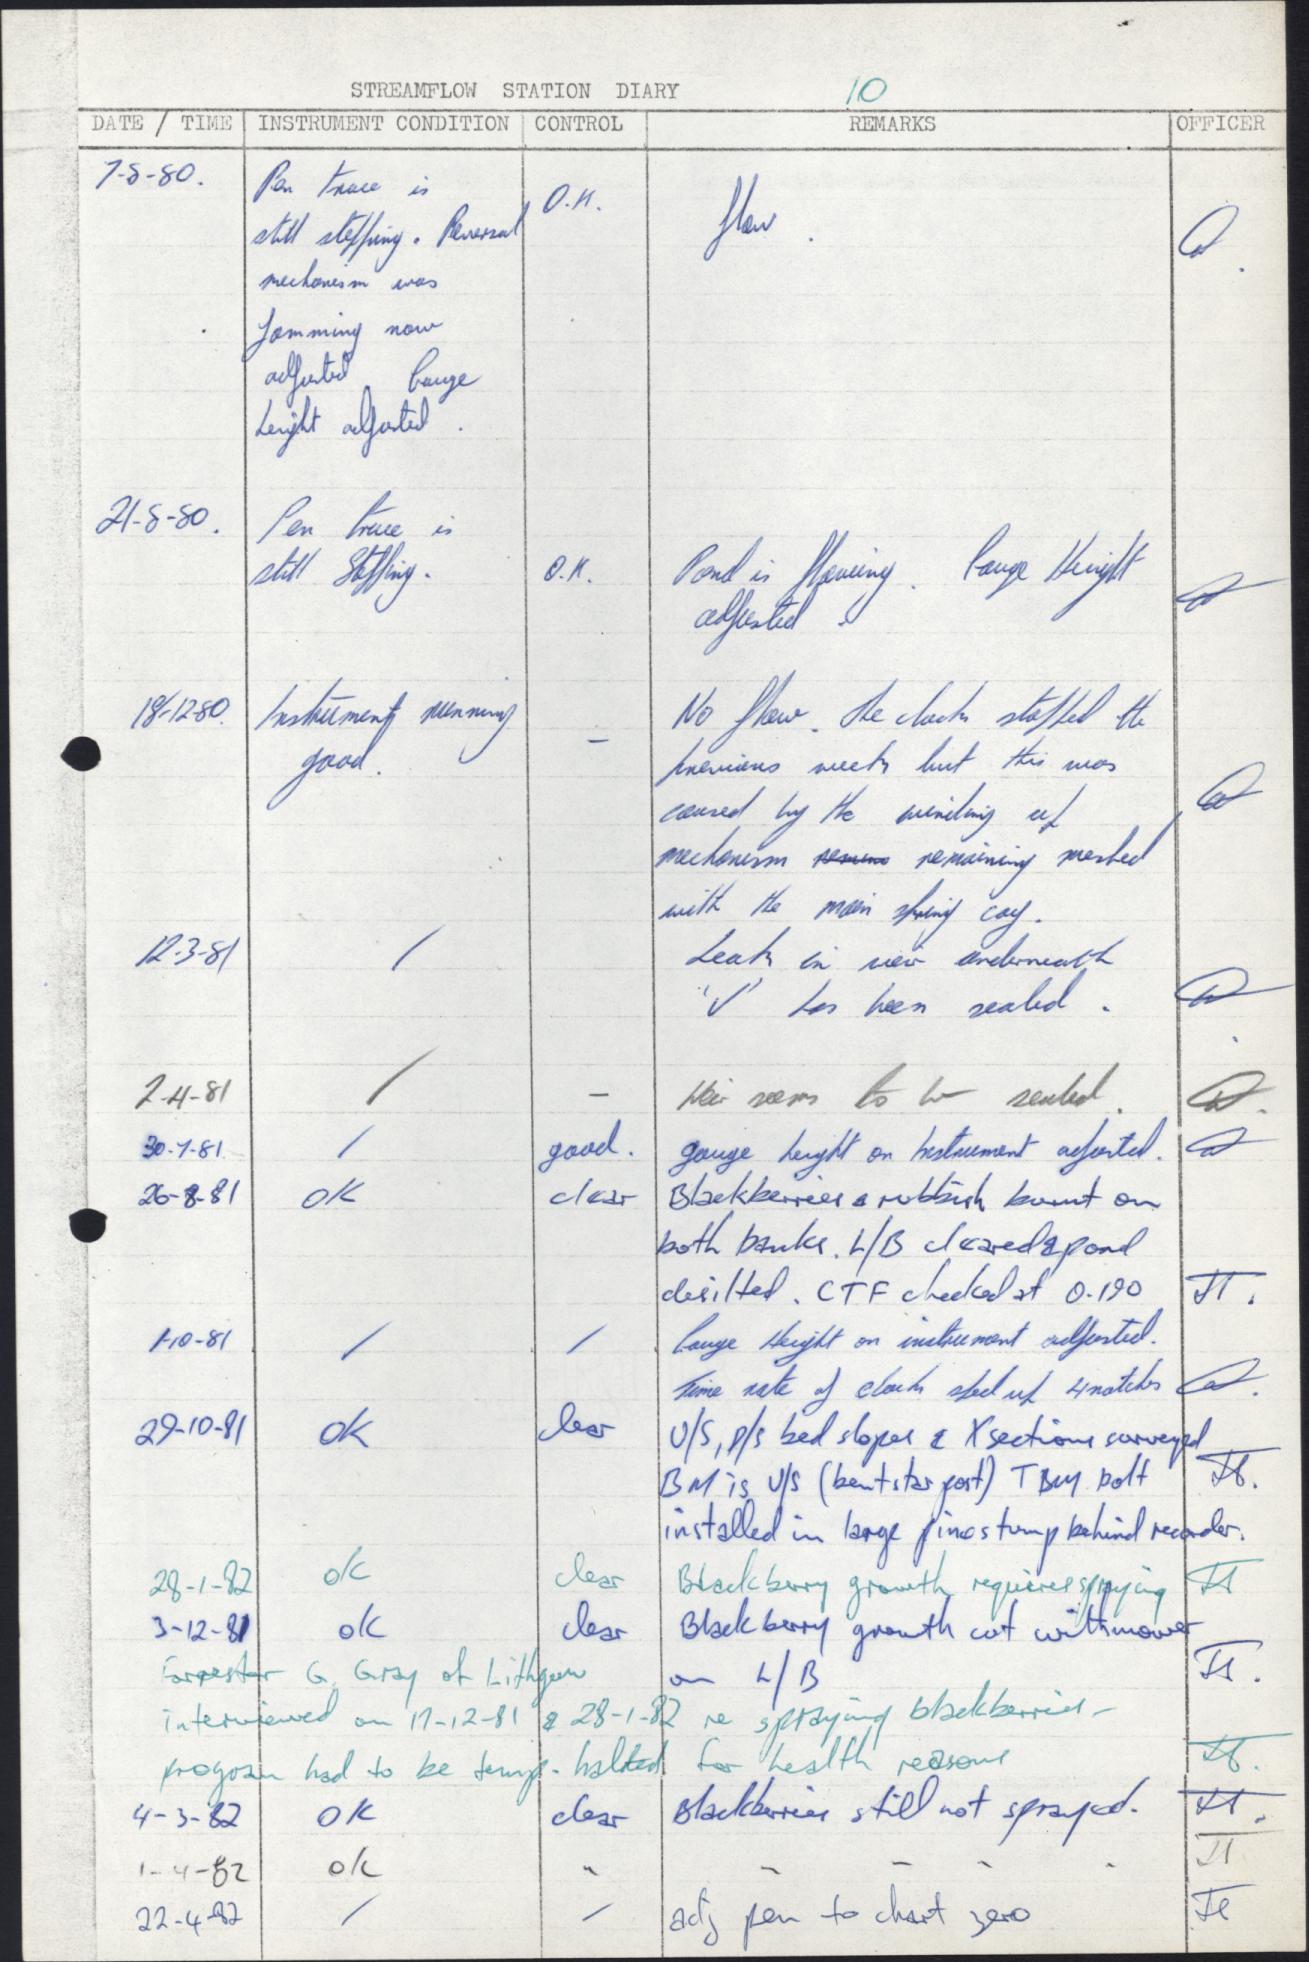 STREAMFLOW STATION DIARY 10
DATE / TIME INSTRUMENT CONDITION CONTROL REMARKS OFFICER
7-8-80. Pen trace is O.K. flow.
still stepping. Reversal
mechanism was
Jamming now
adjusted Gauge
height adjusted.
21-8-80. Pen trace is
still Stepping. O.K. Pond is flowing. Gauge Height
adjusted.
18-12-80. Instrument running – No flow. The clock stopped the
good. previous week but this was
caused by the winding up
mechanism remaining meshed
with the main spring cog.
12-3-81 / Leak in weir underneath
'V' has been sealed.
2-4-81 / – Weir seems to be sealed.
30-7-81. / good. gauge height on Instrument adjusted.
26-8-81 OK clear Blackberries & rubbish burnt on
both banks. L/B cleared & pond
desilted. CTF checked at 0.190
1-10-81 / / Gauge Height on instrument adjusted.
Time rate of clock sped up 4 notches
29-10-81 OK clear U/S, D/S bed slopes & X sections surveyed
BM is U/S (bent star post) TBM bolt
installed in large pine stump behind recorder.
28-1-82 OK clear Blackberry growth requires spraying
3-12-81 OK clear Blackberry growth cut with mower
on L/B
Forrester G. Gray of Lithgow
interviewed on 17-12-81 & 28-1-82 re spraying blackberries –
program had to be temp. halted for health reasons
4-3-82 OK clear Blackberries still not sprayed.
1-4-82 OK " " " " "
22-4-82 / / adj pen to chart zero